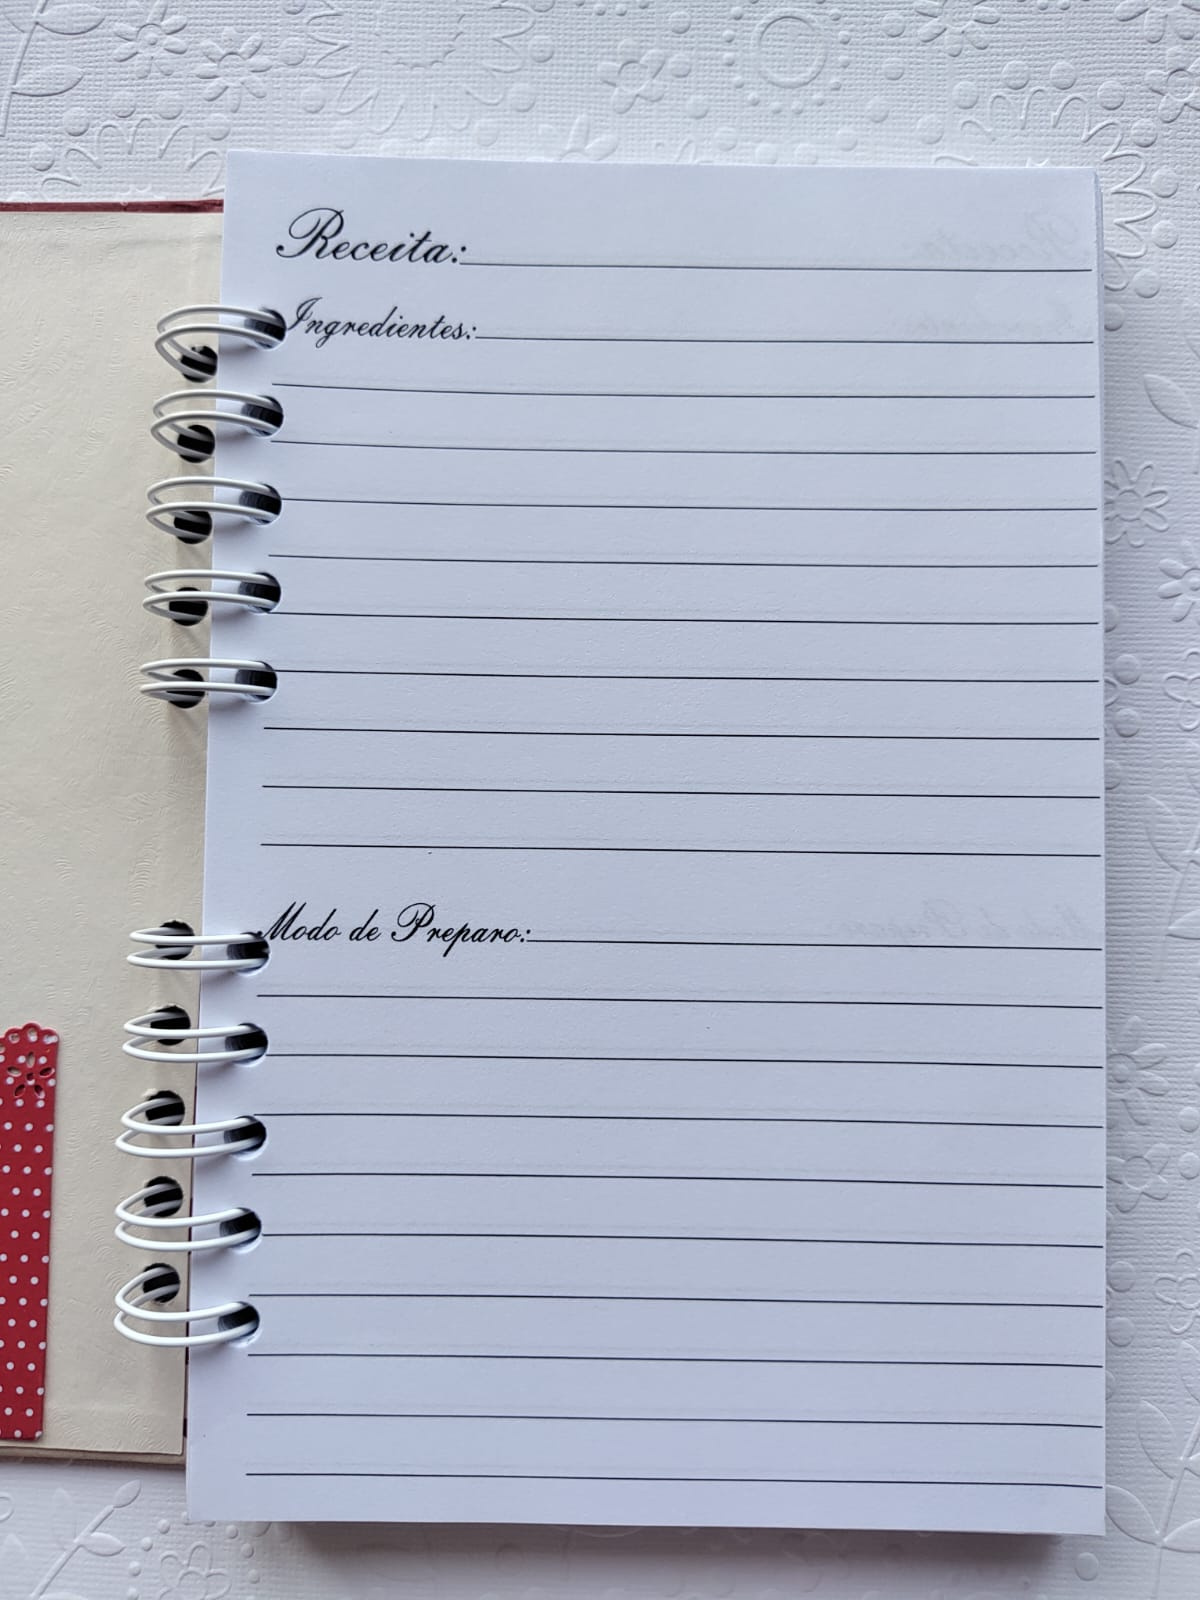 Receita:
Ingredientes:
Modo de Preparo: